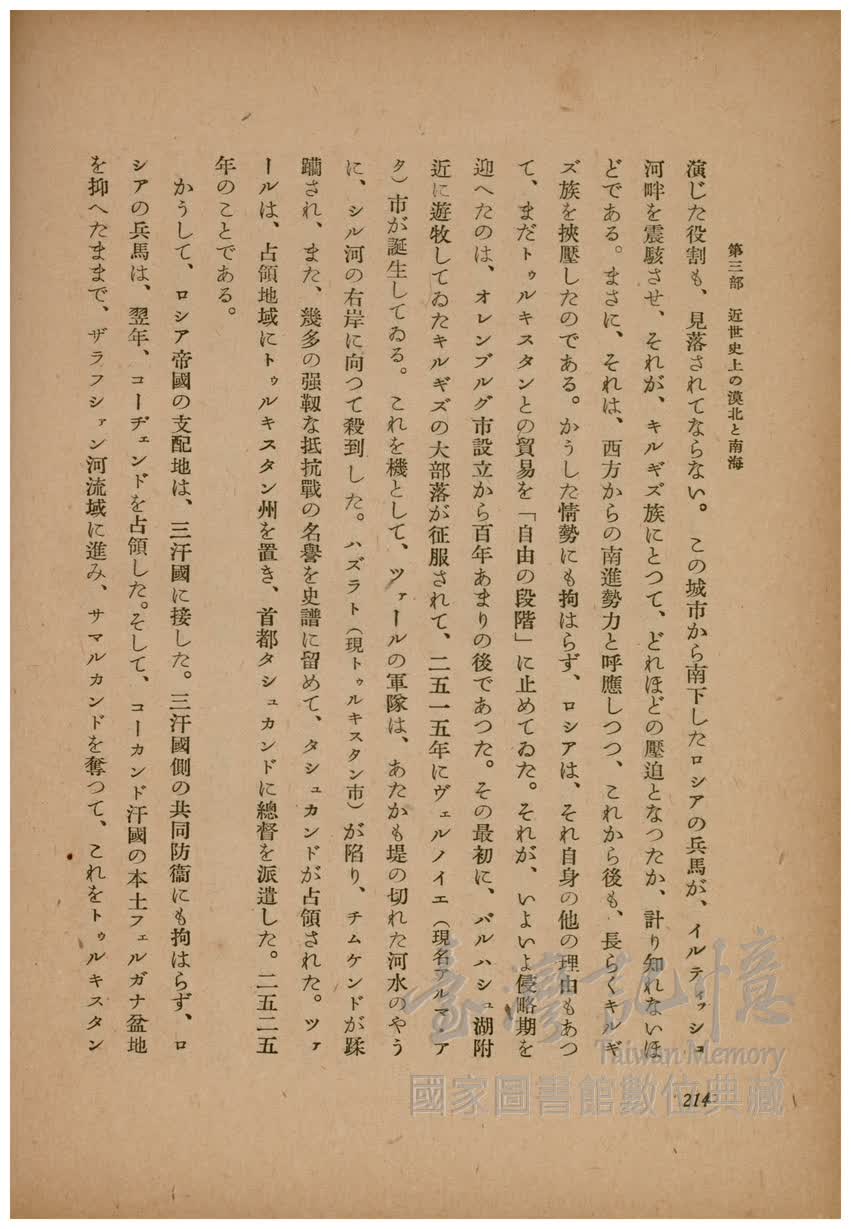 第三部 近世史上の漠北と南海
演じた役割も、見落されてならない。この城市から南下したロシアの兵馬が、イルティッシュ
河畔を震駭させ、それが、キルギズ族にとつて、どれほどの壓迫となつたか、計り知れないほ
どである。まさに、それは、西方からの南進勢力と呼應しつつ、これから後も、長らくキルギ
ズ族を挾壓したのである。かうした情勢にも拘はらず、ロシアは、それ自身の他の理由もあつ
て、まだトゥルキスタンとの貿易を「自由の段階」に止めてゐた。それが、いよいよ侵略期を
迎へたのは、オレンブルグ市設立から百年あまりの後であつた。その最初に、バルハシュ湖附
近に遊牧してゐたキルギズの大部落が征服されて、二五一五年にヴェルノイエ(現名アルマ・ア
タ)市が誕生してゐる。これを機として、ツァールの軍隊は、あたかも堤の切れた河水のやう
に、シル河の右岸に向つて殺到した。ハズラト(現トゥルキスタン市)が陷り、チムケンドが蹂
躪され、また、幾多の强靱な抵抗戰の名譽を史譜に留めて、タシュカンドが占領された。ツァ
ールは、占領地域にトゥルキスタン州を置き、首都タシュカンドに總督を派遣した。二五二五
年のことである。
かうして、ロシア帝國の支配地は、三汗國に接した。三汗國側の共同防衞にも拘はらず、ロ
シアの兵馬は、翌年、コーヂェンドを占領した。そして、コーカンド汗國の本土フェルガナ盆地
を抑へたままで、ザラフシァン河流域に進み、サマルカンドを奪つて、これをトゥルキスタン
214
臺灣記憶
Taiwan Memory
國家圖書館數位典藏